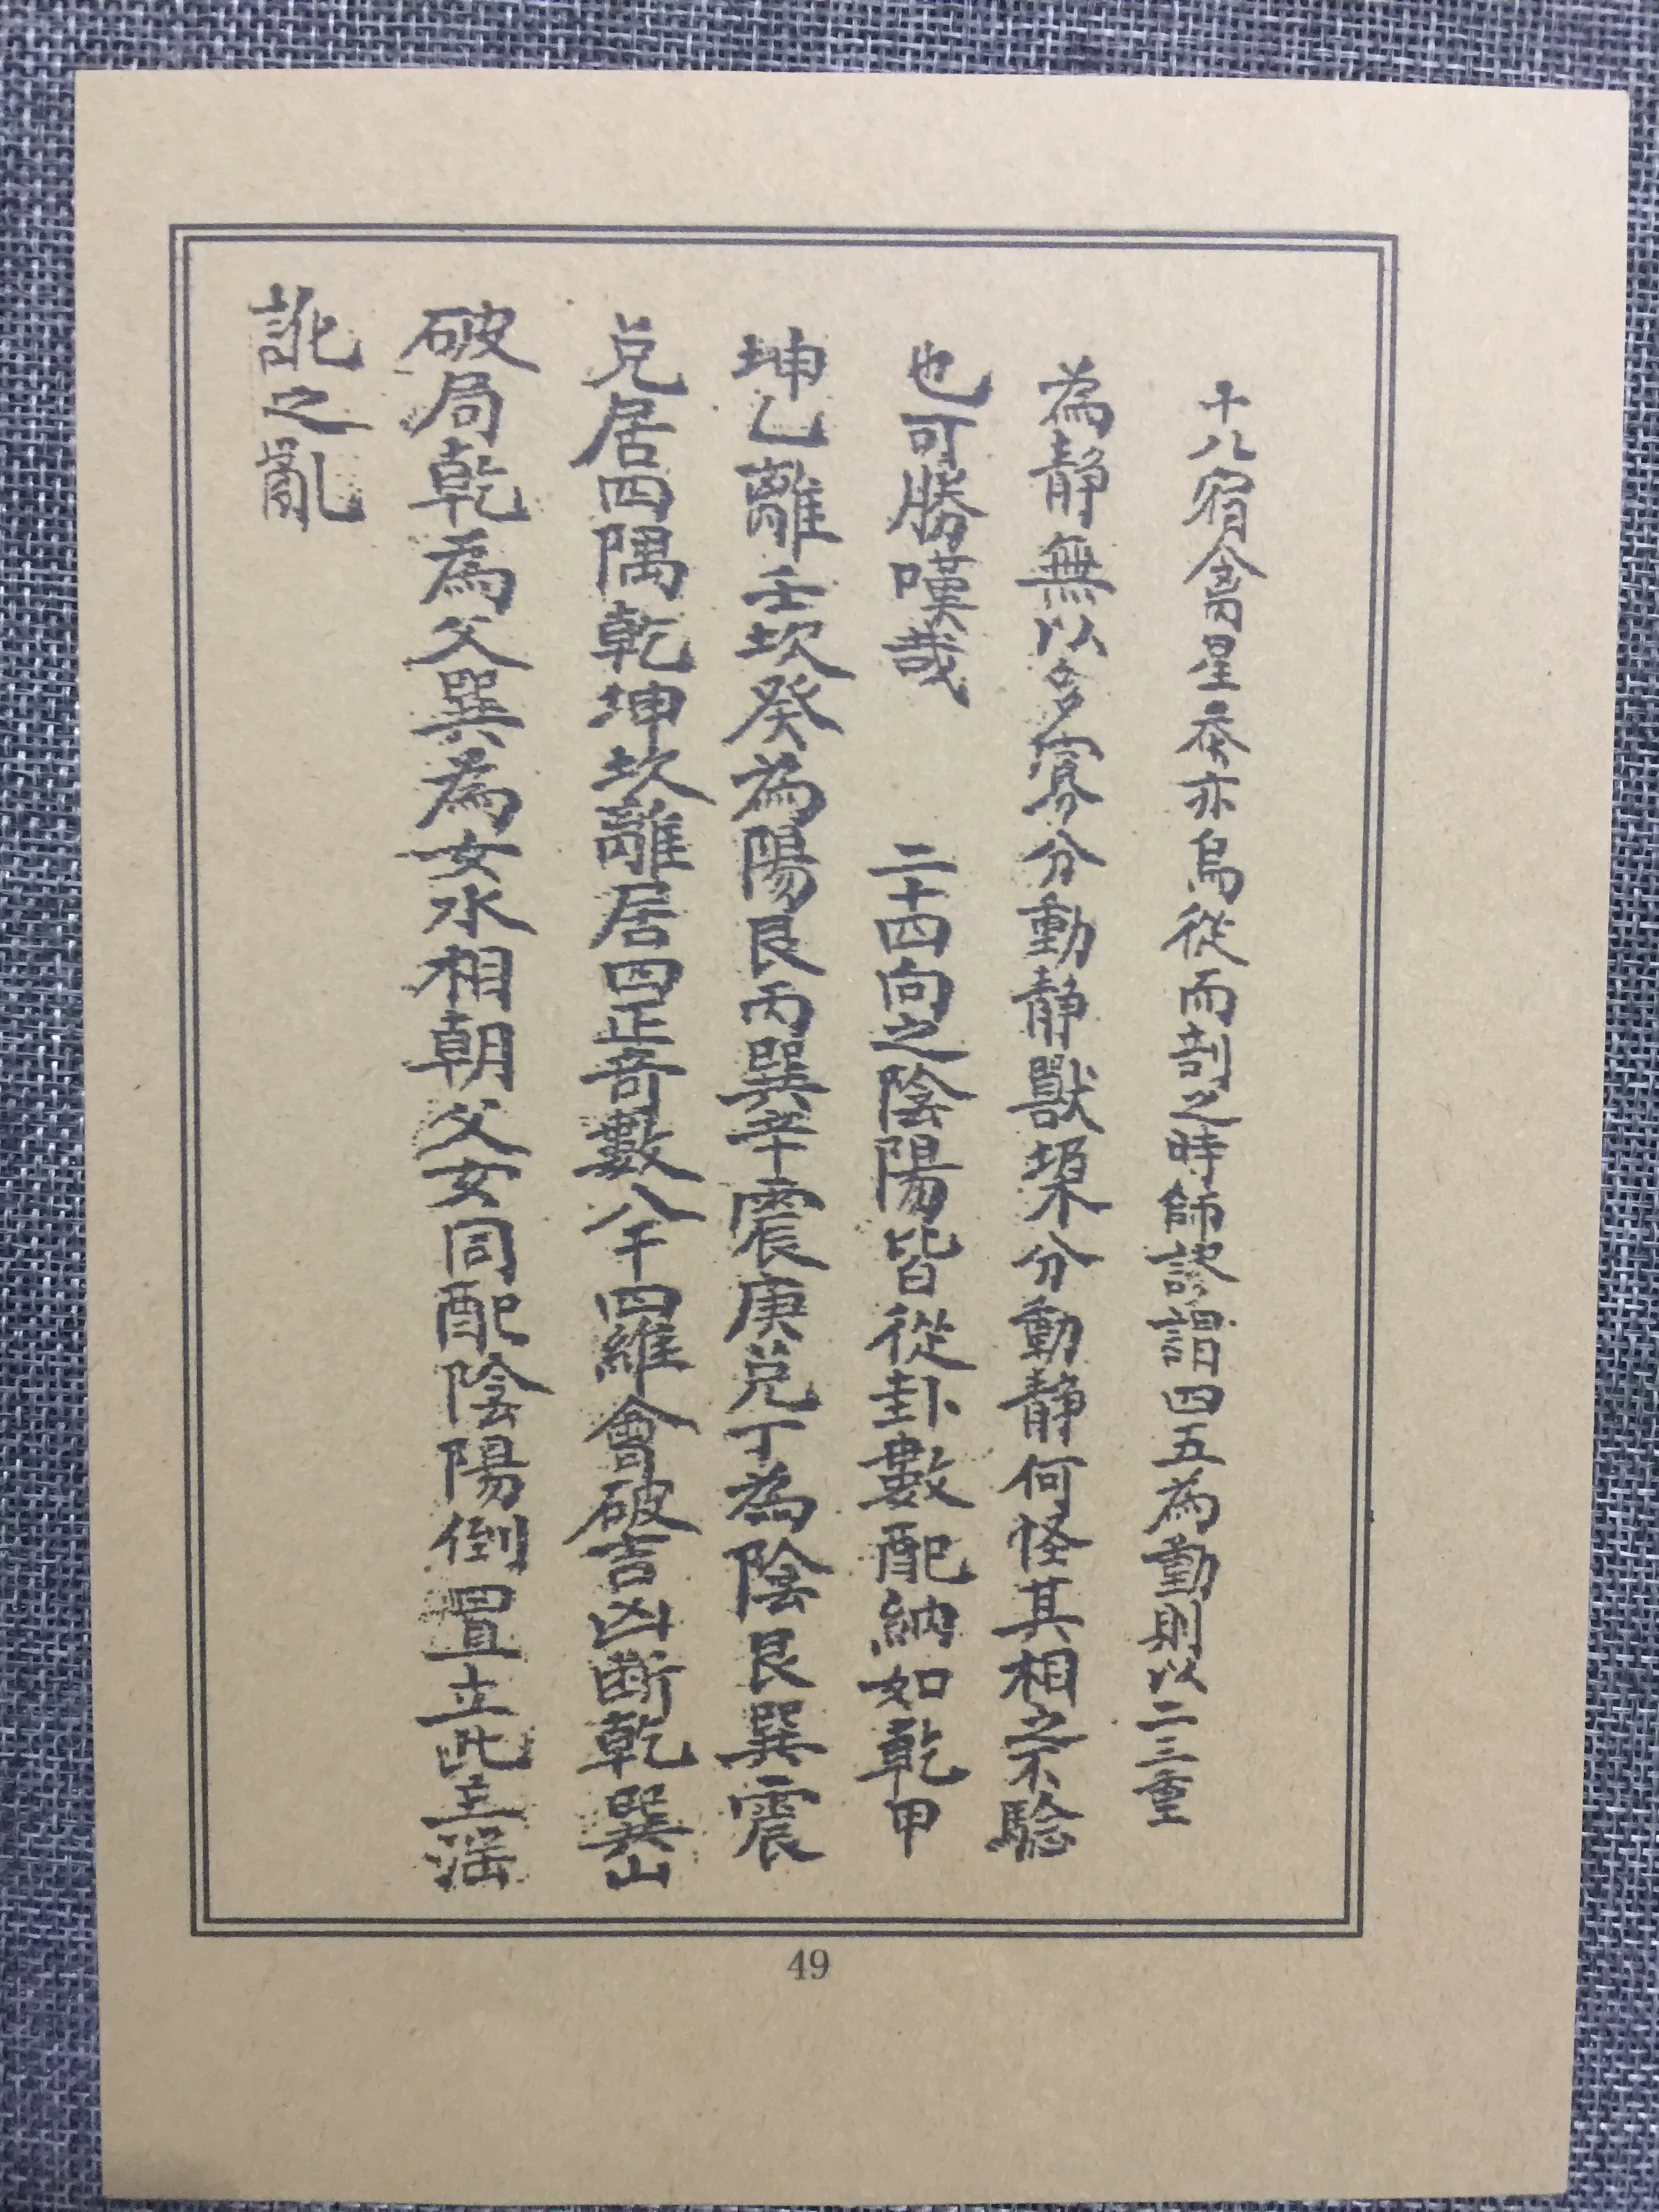 十八宿禽星吞亦烏從而剖之時師謬謂四五為動則以二三重
為靜無以多寡分動靜獸㮣分動靜何怪其相之不驗
也可勝嘆哉 二十四向之陰陽皆從卦數配納如乾甲
坤乙離壬坎癸為陽艮丙巽辛震庚兌丁為陰艮巽震
兌居四隅乾坤坎離居四正竒數八干四維會破吉凶斷乾巽山
破局乾為父巽為女水相朝父女同配陰陽倒置主此主滛
訛之亂
49